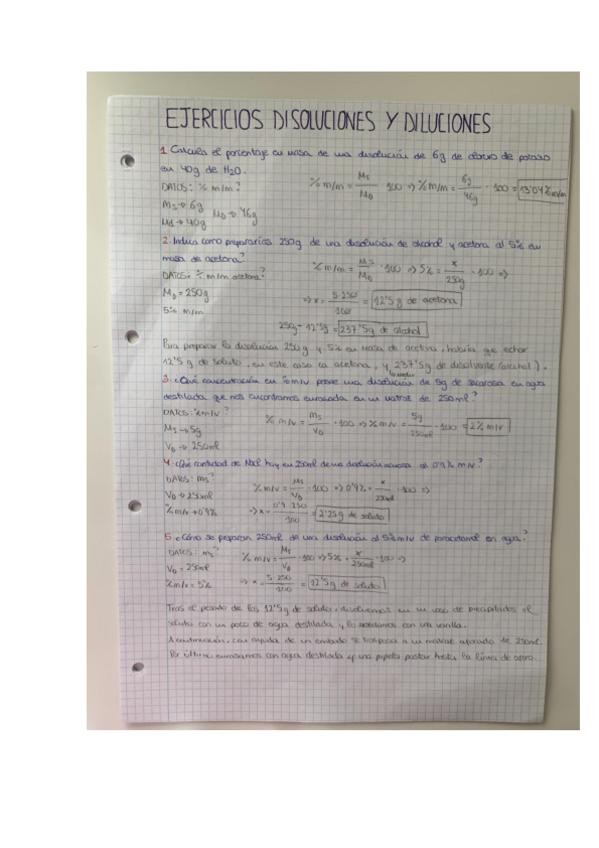 EJERCICIOS DISOLUCIONES Y DILUCIONES
1. Calcula el porcentaje en masa de una disolución de 6g de cloruro de potasio
en 40g de H2O.
DATOS: % m/m? % m/m = Ms/MD · 100 => % m/m = 6g/46g · 100 = 13'04% m/m
Ms → 6g
Md → 40g MD → 46g
2. Indica como prepararías 250g de una disolución de alcohol y acetona al 5% en
masa de acetona?
DATOS: % m/m acetona? % m/m = Ms/MD · 100 => 5% = x/250g · 100 =>
MD = 250g => x = 5·250/100 = 12'5g de acetona
5% m/m
250g - 12'5g = 237'5g de alcohol
Para preparar la disolución 250g y 5% en masa de acetona, habría que echar
12'5 g de soluto, en este caso la acetona, y 237'5g de disolvente (alcohol).
3. ¿Qué concentración en % m/v posee una disolución de 5g de sacarosa en agua
destilada que nos encontramos enrasada en un matraz de 250ml?
DATOS: % m/v? % m/v = ms/VD · 100 => % m/v = 5g/250ml · 100 = 2% m/v
Ms → 5g
VD → 250ml
4. ¿Qué cantidad de NaCl hay en 250ml de una disolución acuosa al 0'9% m/v?
DATOS: ms? % m/v = Ms/VD · 100 => 0'9% = x/250ml · 100 =>
VD → 250ml
% m/v → 0'9% => x = 0'9·250/100 = 2'25g de soluto
5. ¿Cómo se preparan 250ml de una disolución al 5% m/v de paracetamol en agua?
DATOS: ms? % m/v = Ms/VD · 100 => 5% = x/250ml · 100 =>
VD = 250ml
% m/v = 5% => x = 5·250/100 = 12'5g de soluto
Tras el pesado de los 12'5g de soluto, disolvemos en un vaso de precipitados el
soluto con un poco de agua destilada y lo removemos con una varilla.
A continuación, con ayuda de un embudo se traspasa a un matraz aforado de 250ml.
Por último enrasamos con agua destilada y una pipeta pasteur hasta la línea de aforo.